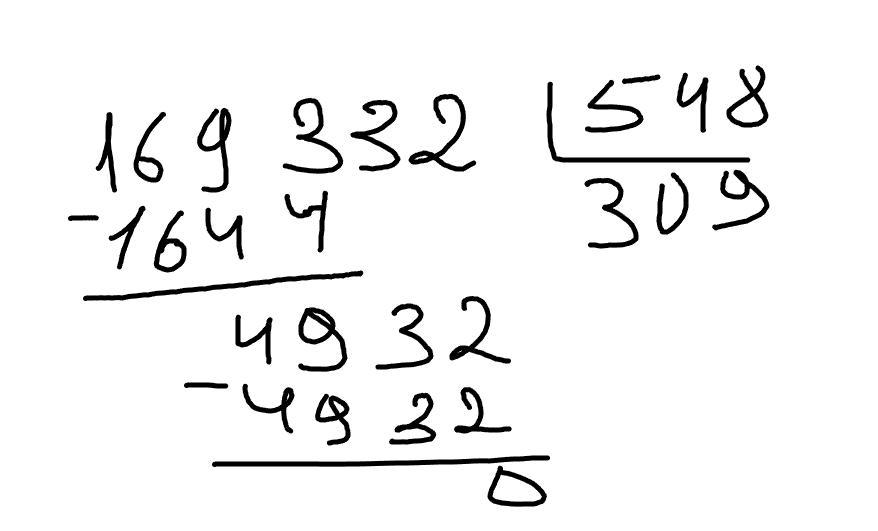 169 332 548
-164 4 309
4932
-4932
0